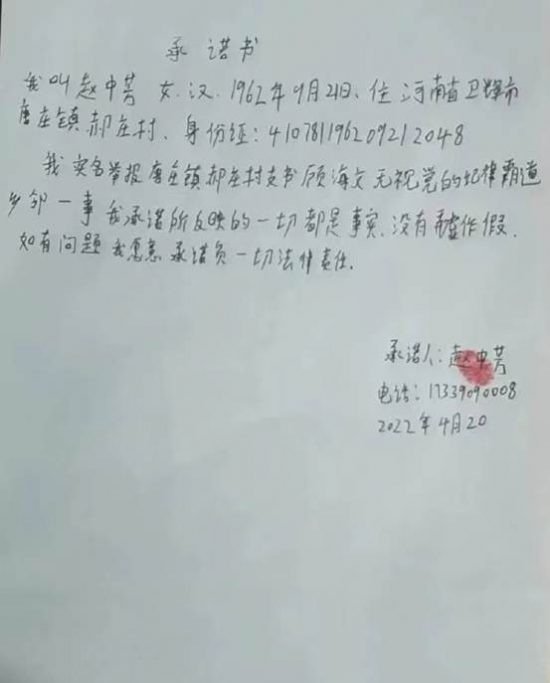 承诺书
我叫赵中芳 女.汉.1962年9月21日.住河南省卫辉市
唐庄镇郝庄村、身份证:410781196209212048
我实名举报唐庄镇郝庄村支书顾海文无视党的纪律霸道
乡邻一事我承诺所反映的一切都是事实.没有虚作假.
如有问题我愿意承诺负一切法律责任.
承诺人:赵中芳
电话:17339090008
2022年4月20